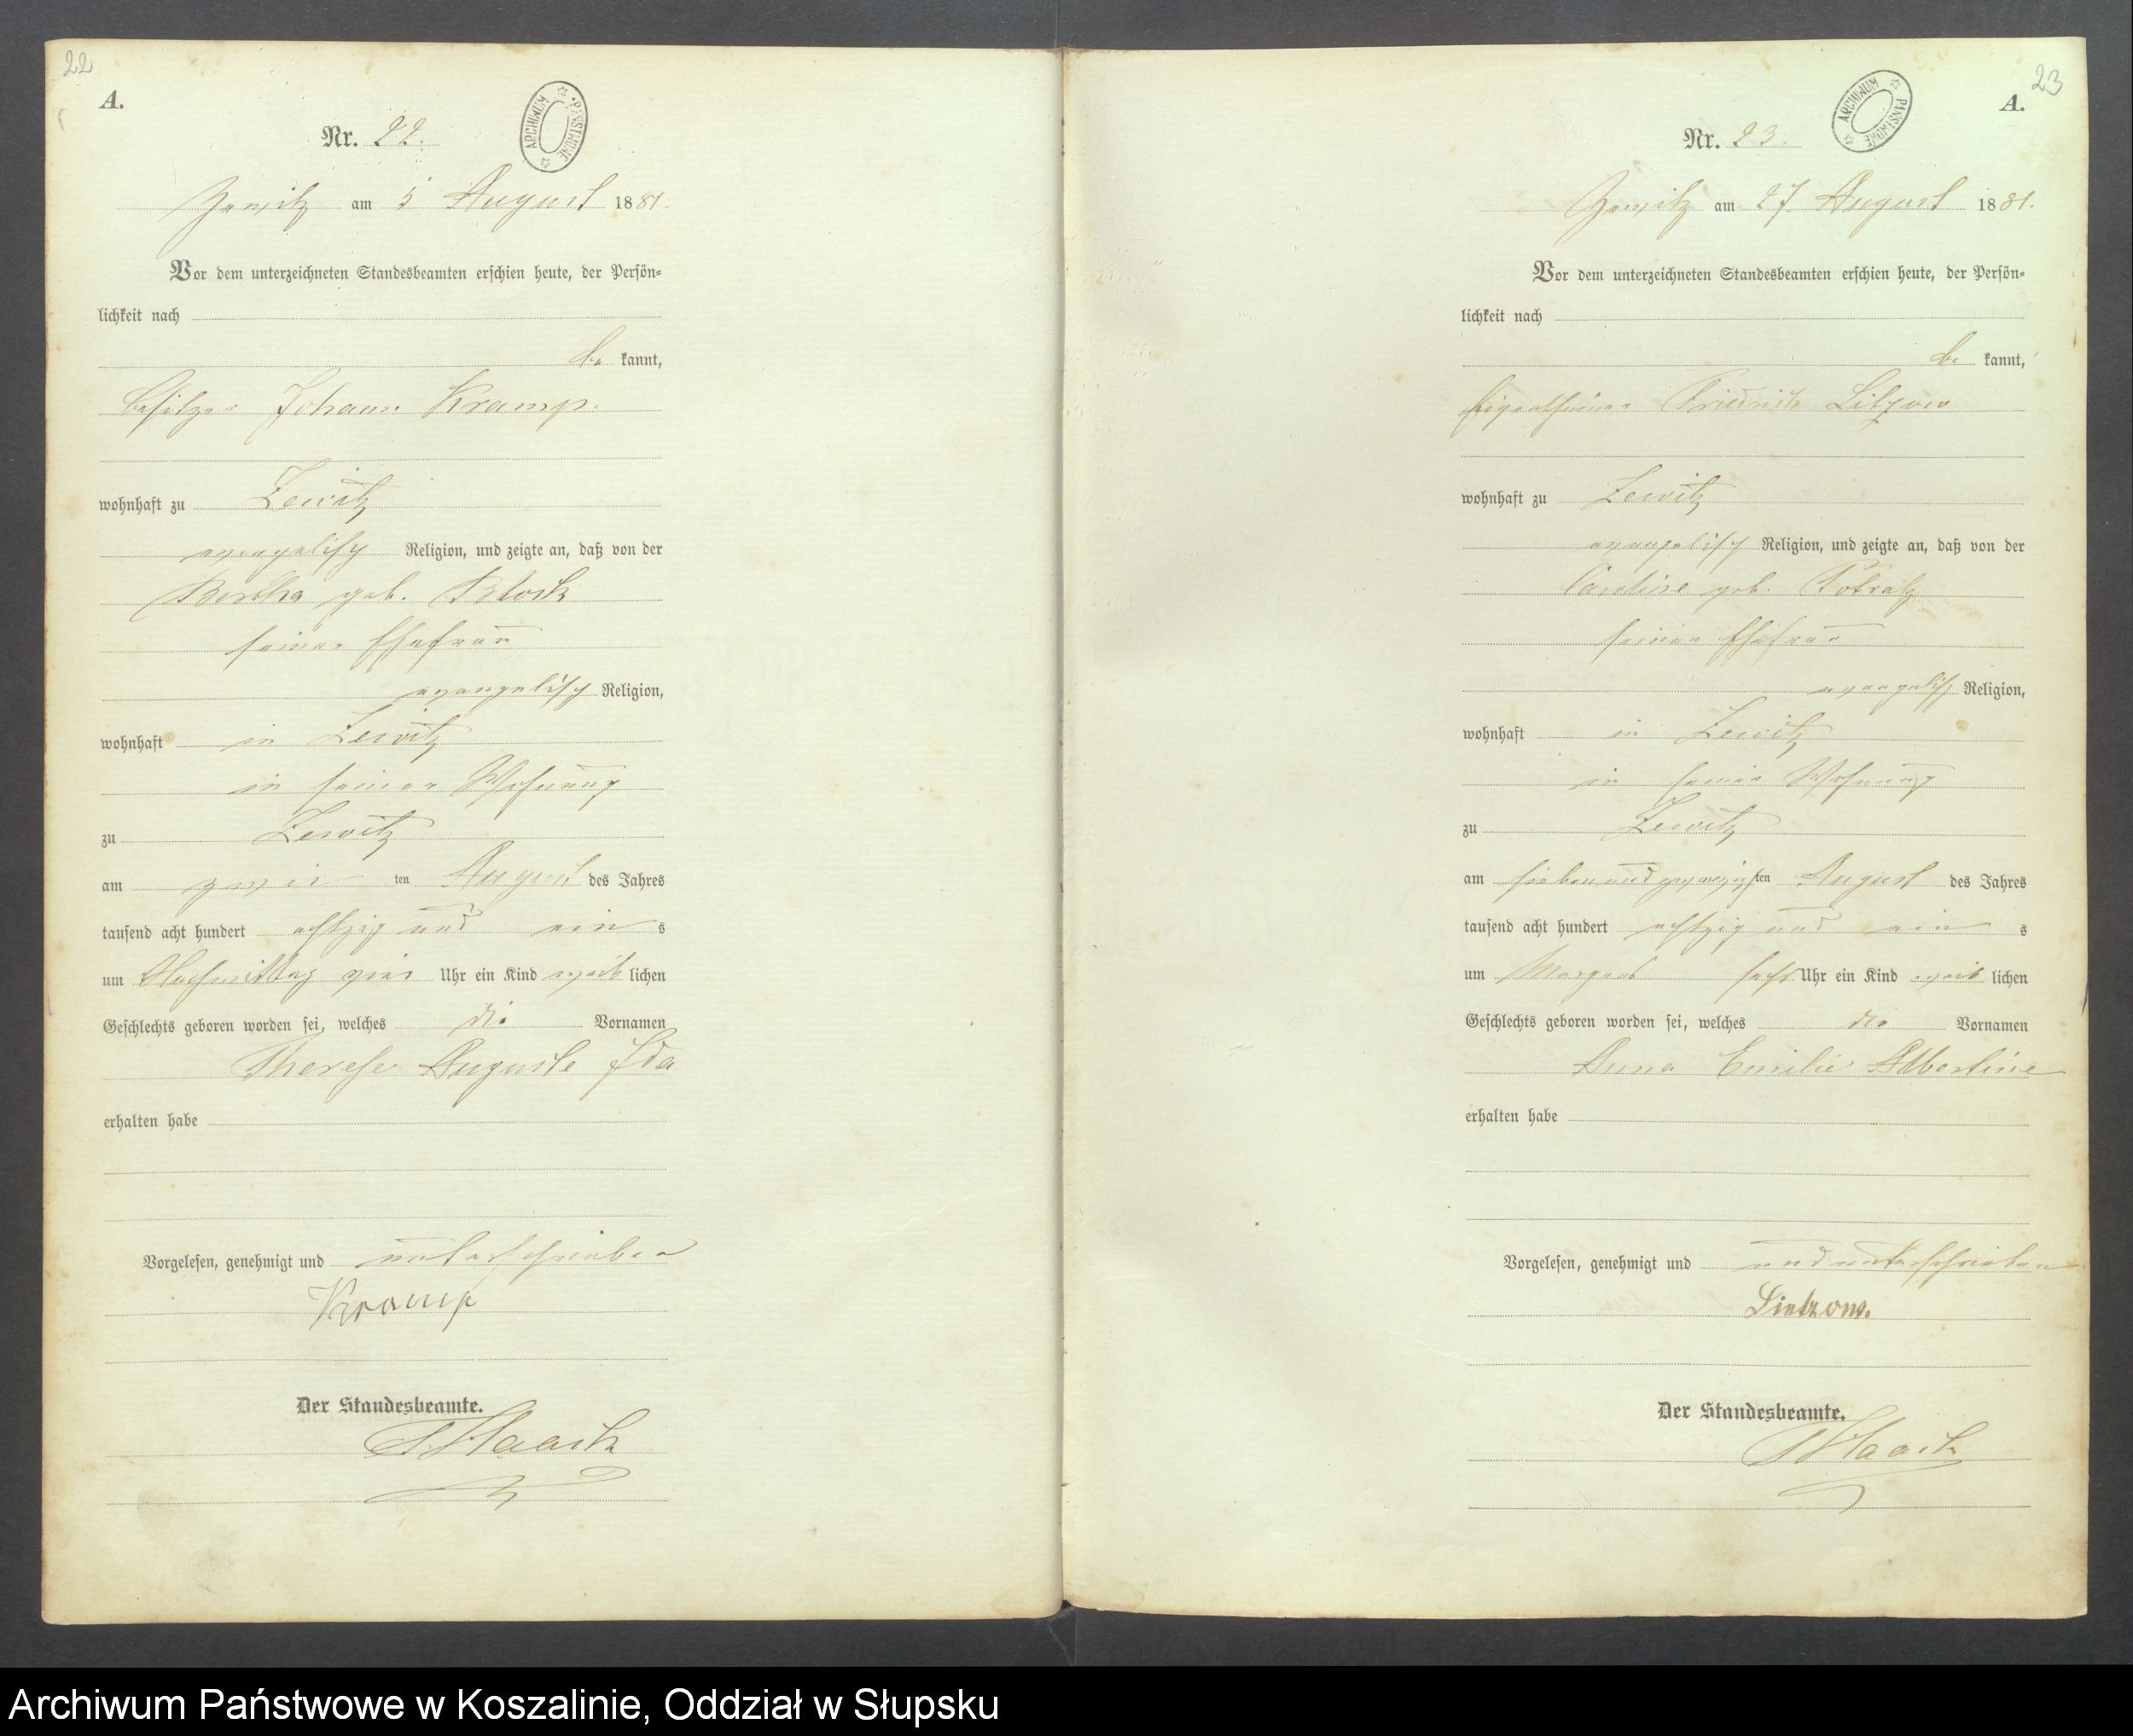 22
A.
ARCHIWUM PAŃSTWOWE
Nr. 22.
Zewitz am 5 August 1881.
Vor dem unterzeichneten Standesbeamten erschien heute, der Persön-
lichkeit nach
be kannt,
Besitzer Johann Kramp.
wohnhaft zu Zewitz
evangelisch Religion, und zeigte an, daß von der
Bertha geb. Block
seiner Ehefrau
evangelisch Religion,
wohnhaft in Zewitz
in seiner Wohnung
zu Zewitz
am zwei ten August des Jahres
tausend acht hundert achtzig und ein s
um Nachmittag vier Uhr ein Kind weib lichen
Geschlechts geboren worden sei, welches die Vornamen
Therese Auguste Ida
erhalten habe
Vorgelesen, genehmigt und unterschrieben
Kramp
Der Standesbeamte.
Haack
23
A.
ARCHIWUM PAŃSTWOWE
Nr. 23.
Zewitz am 27 August 1881.
Vor dem unterzeichneten Standesbeamten erschien heute, der Persön-
lichkeit nach
be kannt,
Eigenthümer Friedrich Litzow
wohnhaft zu Zewitz
evangelisch Religion, und zeigte an, daß von der
Caroline geb. Potratz
seiner Ehefrau
evangelisch Religion,
wohnhaft in Zewitz
in seiner Wohnung
zu Zewitz
am siebenundzwanzigsten August des Jahres
tausend acht hundert achtzig und ein s
um Morgens sechs Uhr ein Kind weib lichen
Geschlechts geboren worden sei, welches die Vornamen
Anna Emilie Albertine
erhalten habe
Vorgelesen, genehmigt und und unterschrieben
Lietzow.
Der Standesbeamte.
Haack
Archiwum Państwowe w Koszalinie, Oddział w Słupsku